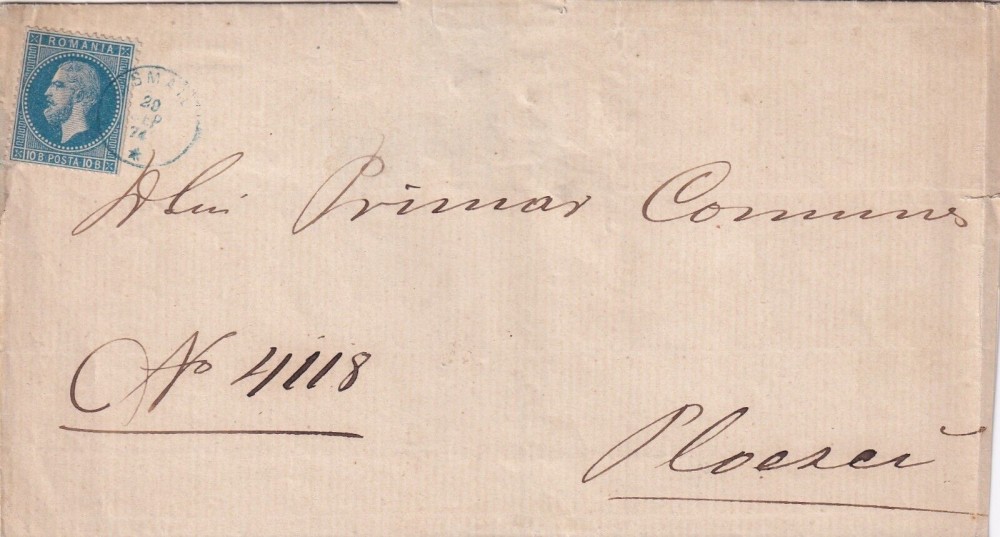 ROMANIA
10 B POSTA 10 B
20
74
Dlui Primar Comunei
No 4118
Ploesci